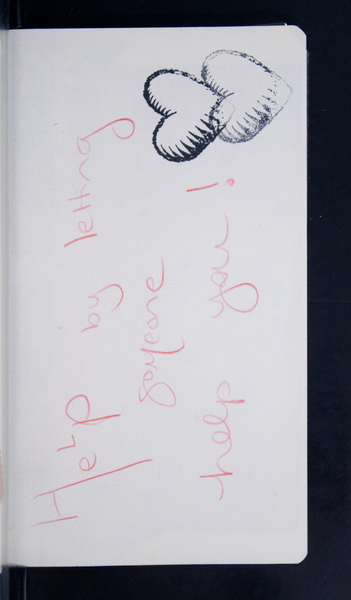 Help by letting
someone
help you!